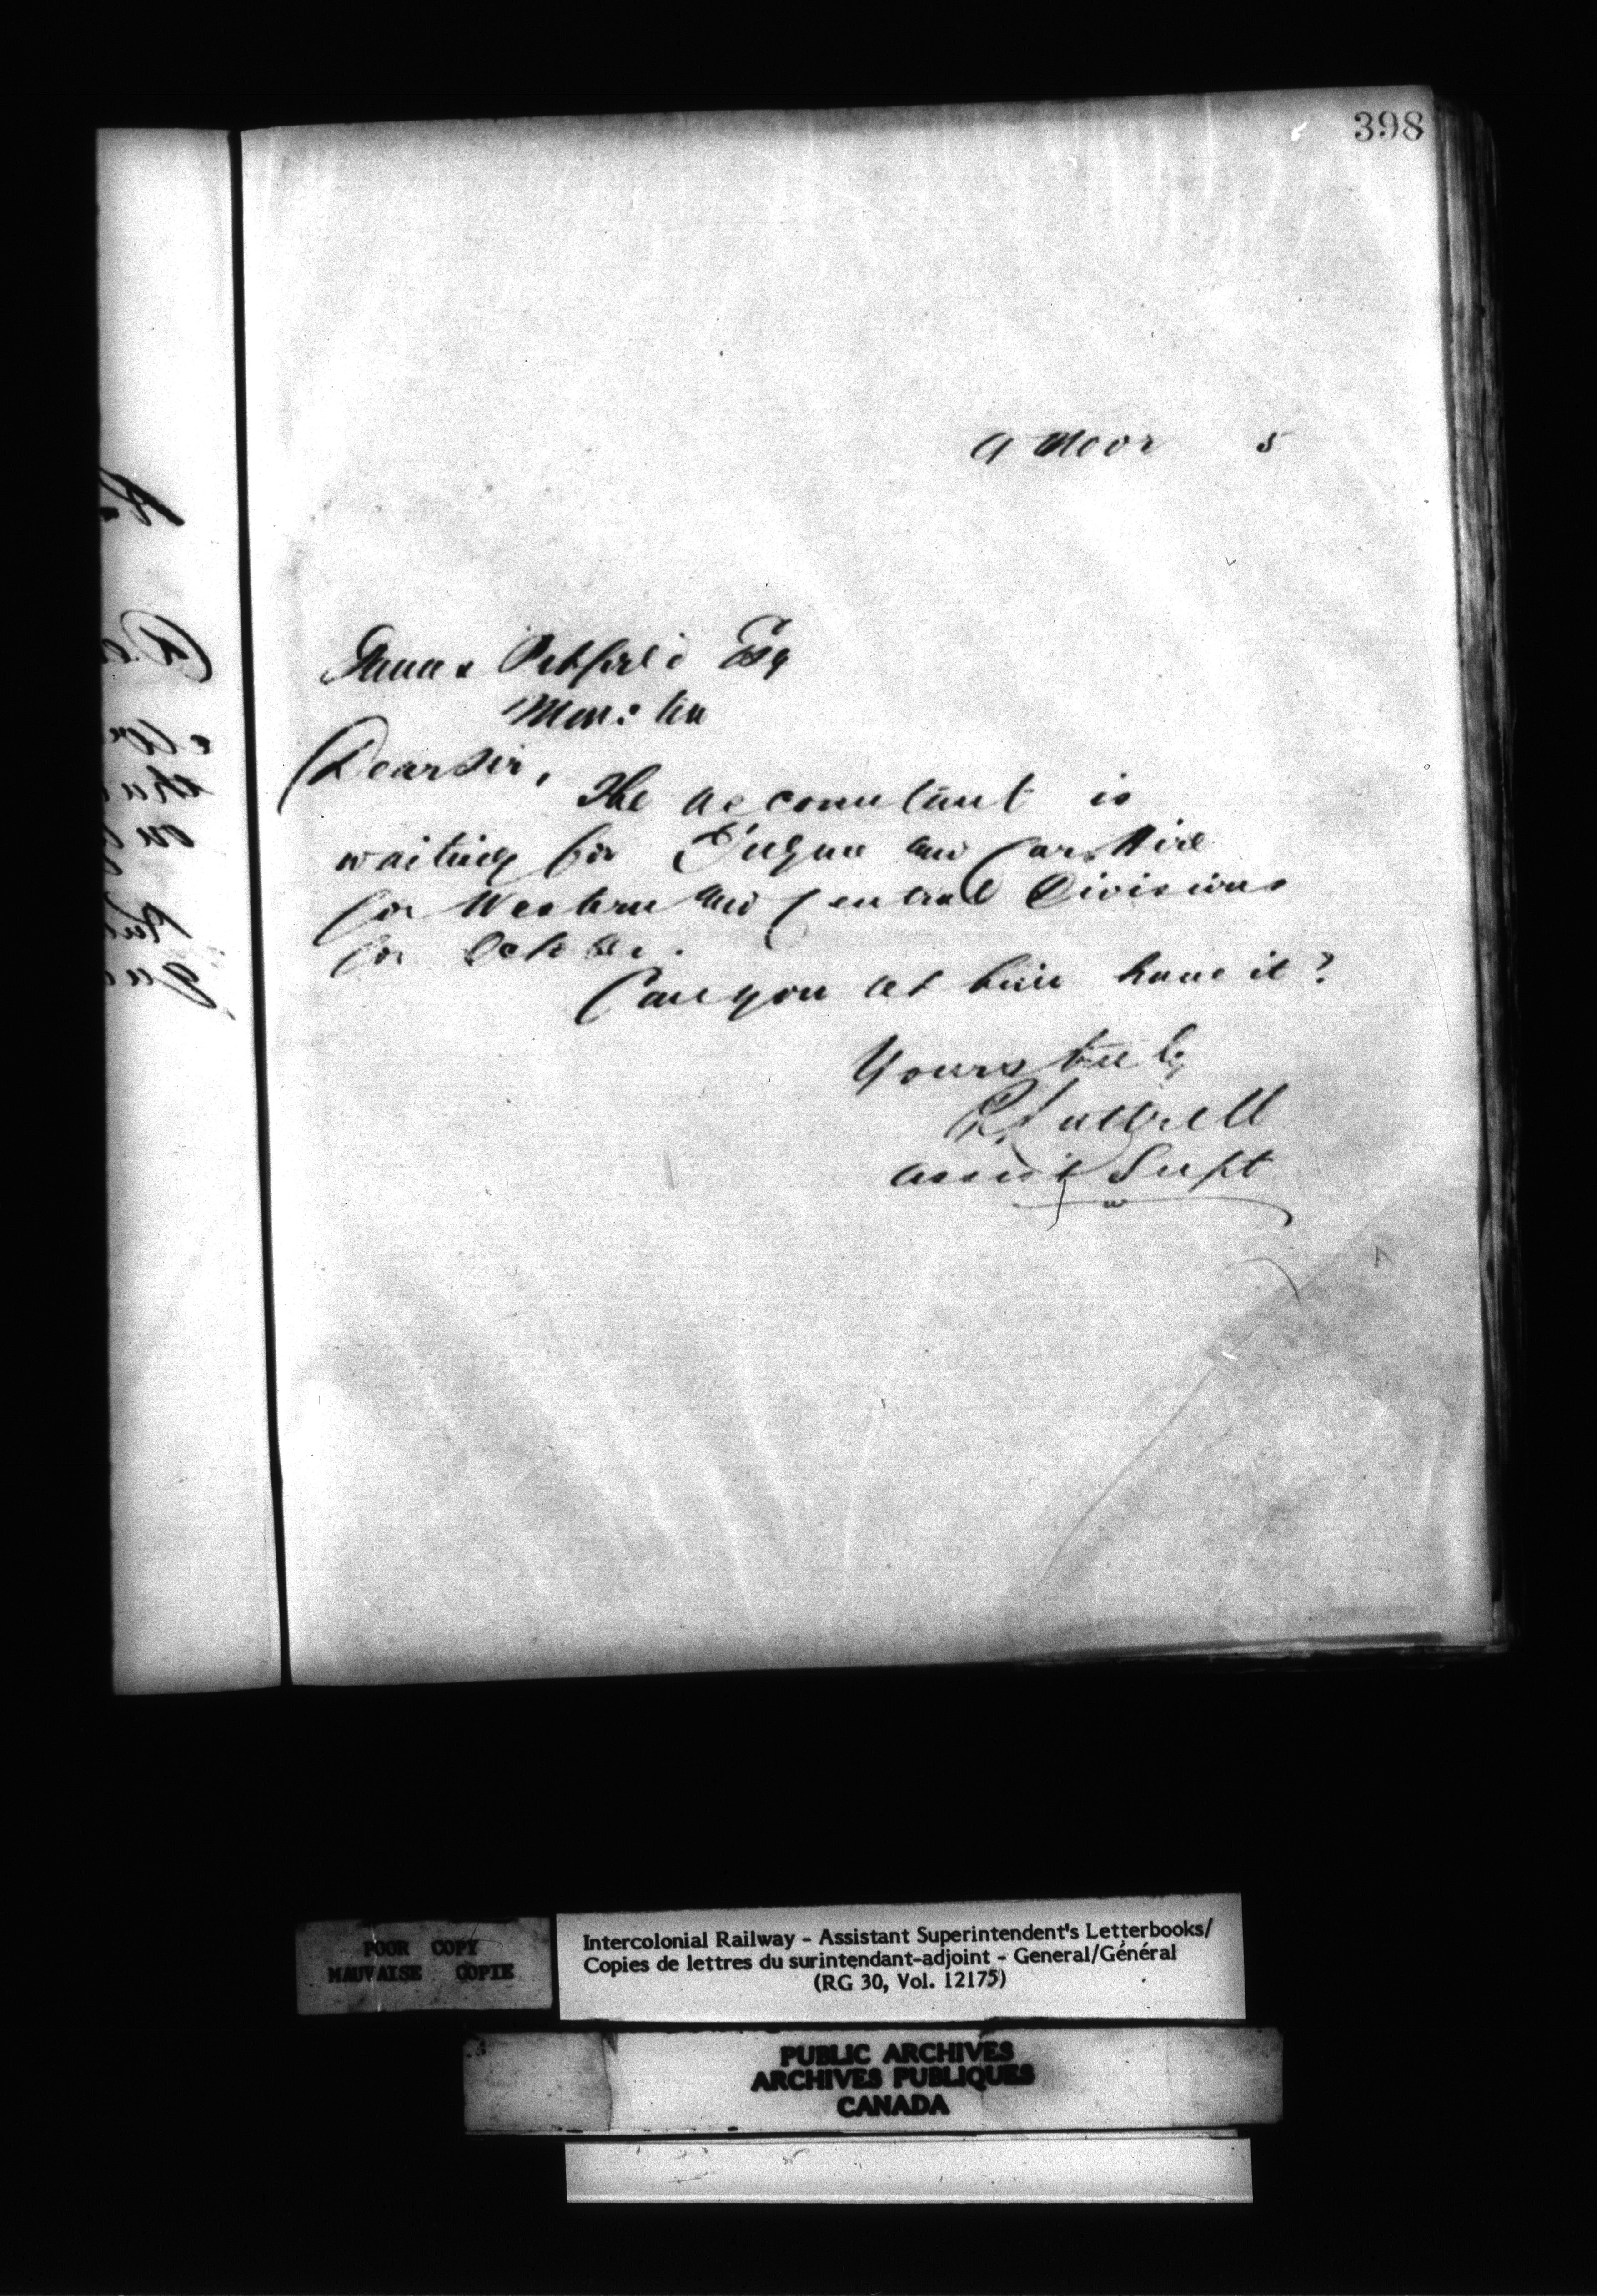 398
9 Novr 5
James Pitfield Esq
Moncton
Dear Sir,
The accountant is
waiting for Engine and Car Hire
for Western and Central Divisions
for October.
Can you let him have it?
Yours truly
Luttrell
Assist Supt
POOR COPY
MAUVAISE COPIE
Intercolonial Railway - Assistant Superintendent's Letterbooks/
Copies de lettres du surintendant-adjoint - General/Général
(RG 30, Vol. 12175)
PUBLIC ARCHIVES
ARCHIVES PUBLIQUES
CANADA